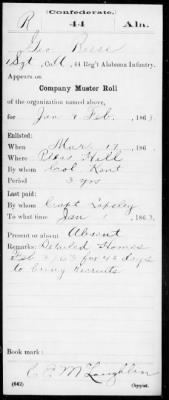 Confederate.
R 44 Ala.
Geo Reese
Sgt, Co. 44 Reg't Alabama Infantry.
Appears on
Company Muster Roll
of the organization named above,
for Jan & Feb, 1863
Enlisted:
When Mar 17, 186
Where Hill
By whom Kent
Period 3 yrs
Last paid:
By whom Capt
To what time Jan 1, 1863.
Present or absent Absent
Remarks: Detailed
Feb 2/63 for 40 days
to bring Recruits
Book mark:
C E McLaughlin
(642) Copyist.